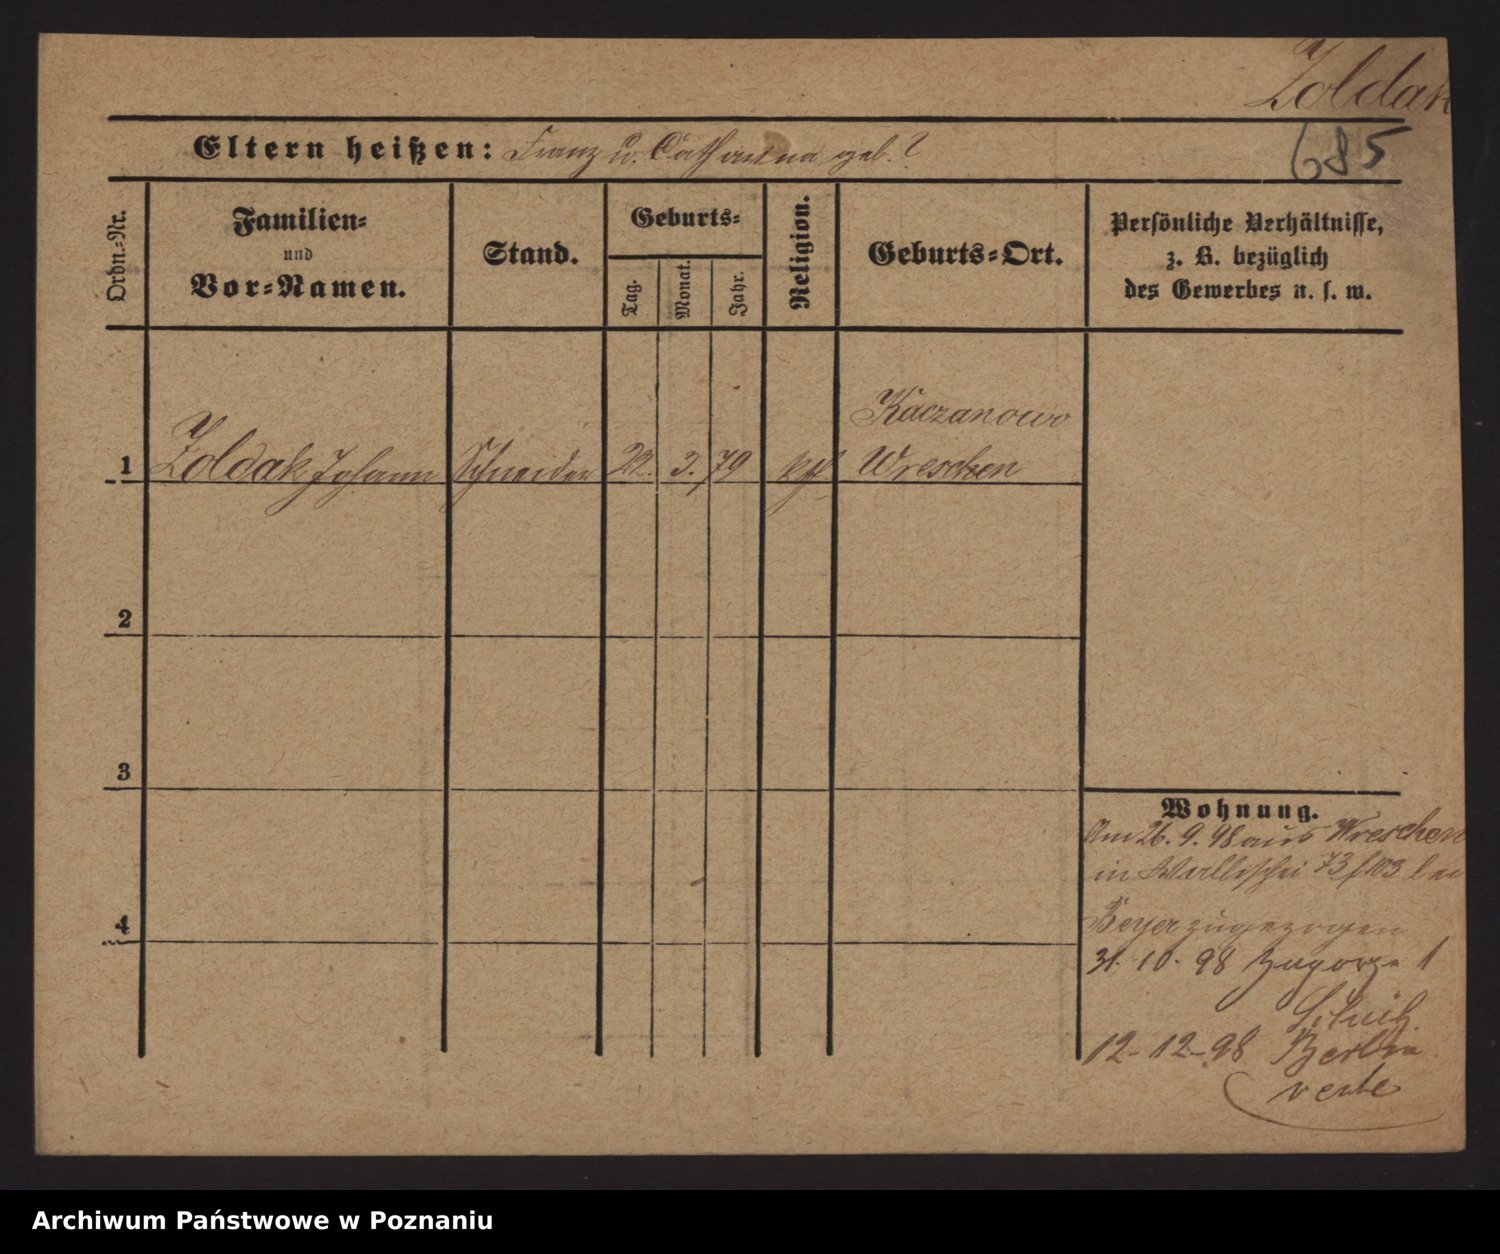 Zoldak
685
Eltern heißen: Franz u. Catharina geb. ?
Ordn.=Nr.
Familien=
und
Vor=Namen.
Stand.
Geburts=
Tag.
Monat.
Jahr.
Religion.
Geburts=Ort.
Persönliche Verhältnisse,
z. B. bezüglich
des Gewerbes u. s. w.
Kaczanowo
1 Zoldak Johann Schneider 22. 3. 79 kth Wreschen
2
3
4
Wohnung.
Am 26. 9. 98 aus Wreschen
in Wallischei 73 bei
Beyer zugezogen
31. 10. 98 Zagorze 1
12-12-98 Berlin
verte
Archiwum Państwowe w Poznaniu